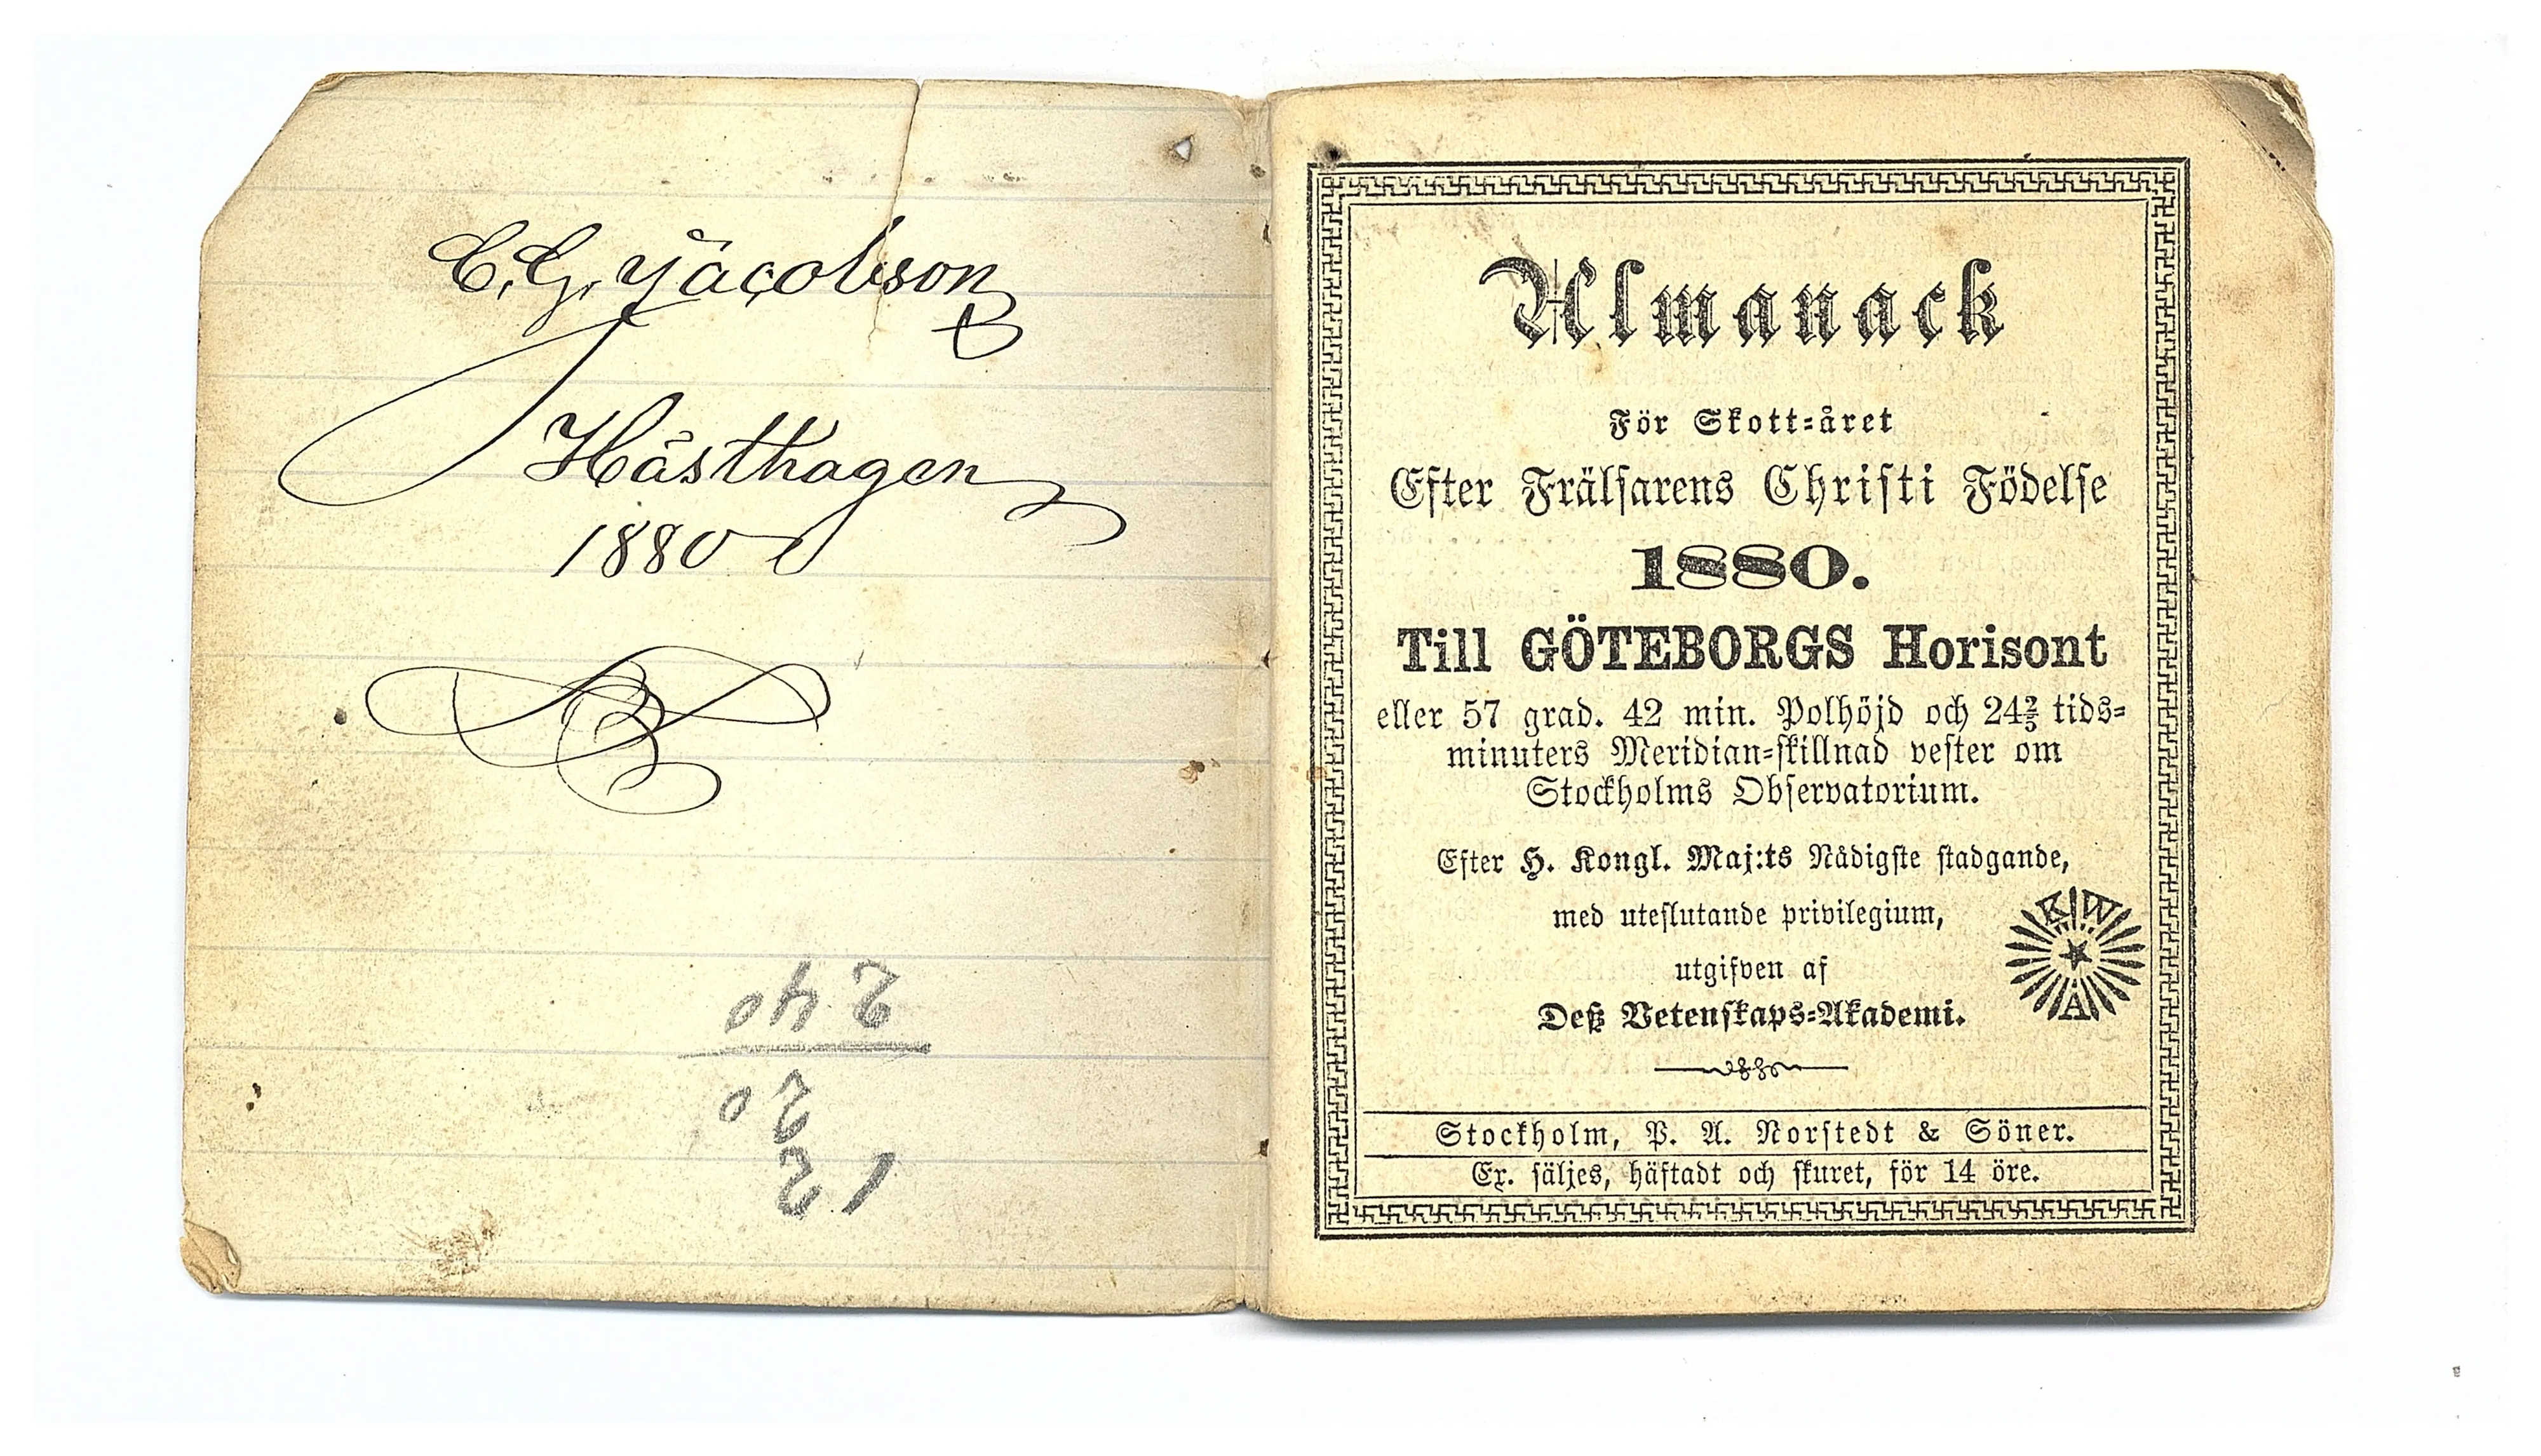 C. G. Jacobson
Hästhagen
1880
12
20
240
Almanack
För Skott-året
Efter Frälsarens Christi Födelse
1880.
Till GÖTEBORGS Horisont
eller 57 grad. 42 min. Polhöjd och 24⅖ tids-
minuters Meridian-skillnad vester om
Stockholms Observatorium.
Efter H. Kongl. Maj:ts Nådigste stadgande,
med uteslutande privilegium,
utgifven af
Deß Vetenskaps-Akademi.
K W
A
Stockholm, P. A. Norstedt & Söner.
Ex. säljes, häftadt och skuret, för 14 öre.